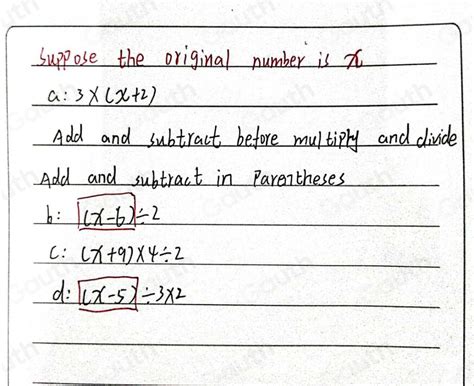 suppose the original number is x
a: 3×(x+2)
Add and subtract before multiply and divide
Add and subtract in Parentheses
b: (x-6)÷2
c: (x+9)×4÷2
d: (x-5)÷3×2